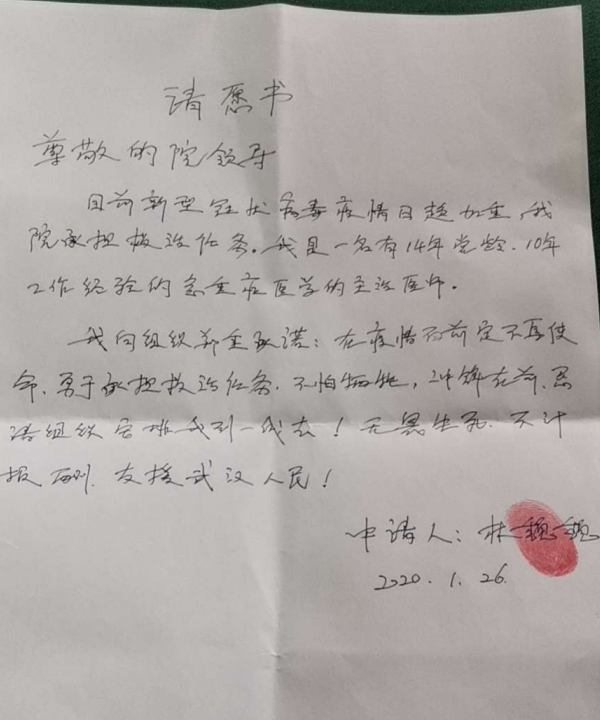 请愿书
尊敬的院领导
目前新型冠状病毒疫情日趋加重,我
院承担救治任务。我是一名有14年党龄、10年
工作经验的急重症医学的主治医师。
我向组织郑重承诺:在疫情面前定不辱使
命、勇于承担救治任务、不怕牺牲,冲锋在前、恳
请组织安排我到一线去!无畏生死、不计
报酬、支援武汉人民!
申请人:林
2020.1.26.